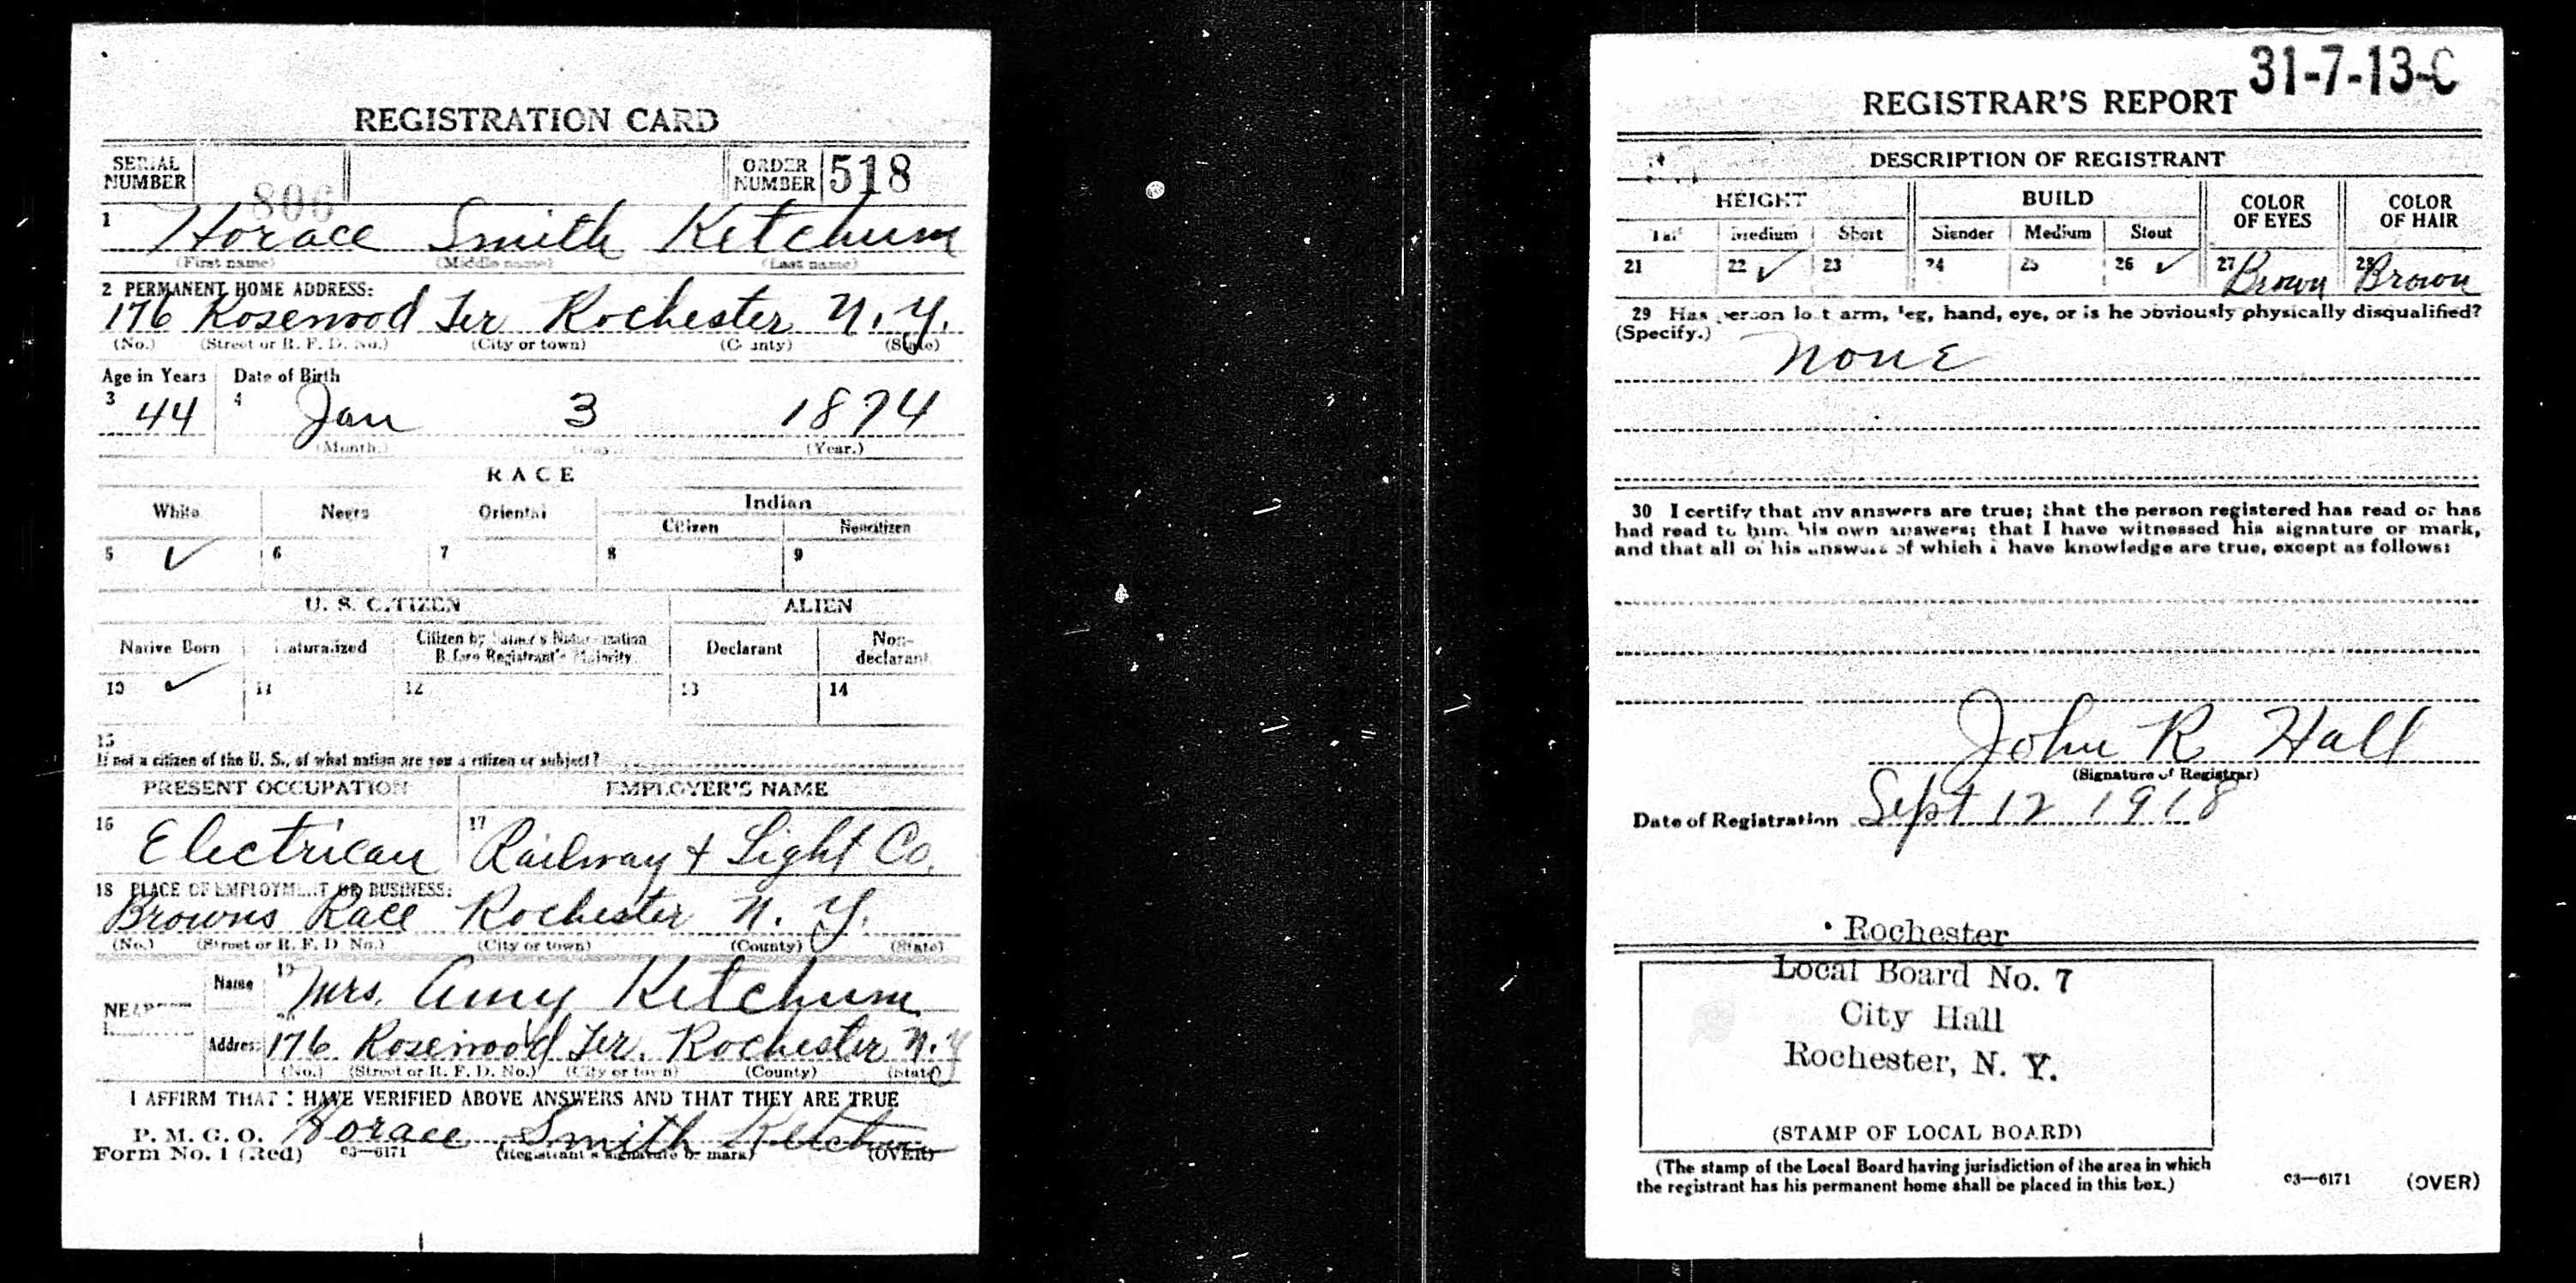 REGISTRATION CARD
SERIAL NUMBER 806 ORDER NUMBER 518
1 Horace Smith Ketchum
(First name) (Middle name) (Last name)
2 PERMANENT HOME ADDRESS:
176 Rosewood Ter Rochester N. Y.
(No.) (Street or R. F. D. No.) (City or town) (County) (State)
Age in Years Date of Birth
3 44 4 Jan 3 1874
(Month.) (Day.) (Year.)
RACE
White Negro Oriental Indian
Citizen Noncitizen
5 ✓ 6 7 8 9
U. S. CITIZEN ALIEN
Native Born Naturalized Citizen by Father's Naturalization Before Registrant's Majority Declarant Non-declarant
10 ✓ 11 12 13 14
15
If not a citizen of the U. S., of what nation are you a citizen or subject?
PRESENT OCCUPATION EMPLOYER'S NAME
16 Electrican 17 Railway + Light Co.
18 PLACE OF EMPLOYMENT OR BUSINESS:
Browns Race Rochester N. Y.
(No.) (Street or R. F. D. No.) (City or town) (County) (State)
Name 19 Mrs. Amy Ketchum
Address 176 Rosewood Ter. Rochester N.Y
(No.) (Street or R. F. D. No.) (City or town) (County) (State)
I AFFIRM THAT I HAVE VERIFIED ABOVE ANSWERS AND THAT THEY ARE TRUE
P. M. G. O. Horace Smith Ketchum
Form No. 1 (Red) 03—6171 (Registrant's signature or mark) (OVER)
31-7-13-C
REGISTRAR'S REPORT
DESCRIPTION OF REGISTRANT
HEIGHT BUILD COLOR OF EYES COLOR OF HAIR
Tall Medium Short Slender Medium Stout
21 22 ✓ 23 24 25 26 ✓ 27 Brown 28 Brown
29 Has person lost arm, leg, hand, eye, or is he obviously physically disqualified?
(Specify.) none
30 I certify that my answers are true; that the person registered has read or has
had read to him his own answers; that I have witnessed his signature or mark,
and that all of his answers of which I have knowledge are true, except as follows:
John R Hall
(Signature of Registrar)
Date of Registration Sept 12 1918
Rochester
Local Board No. 7
City Hall
Rochester, N. Y.
(STAMP OF LOCAL BOARD)
(The stamp of the Local Board having jurisdiction of the area in which
the registrant has his permanent home shall be placed in this box.)
03—6171 (OVER)